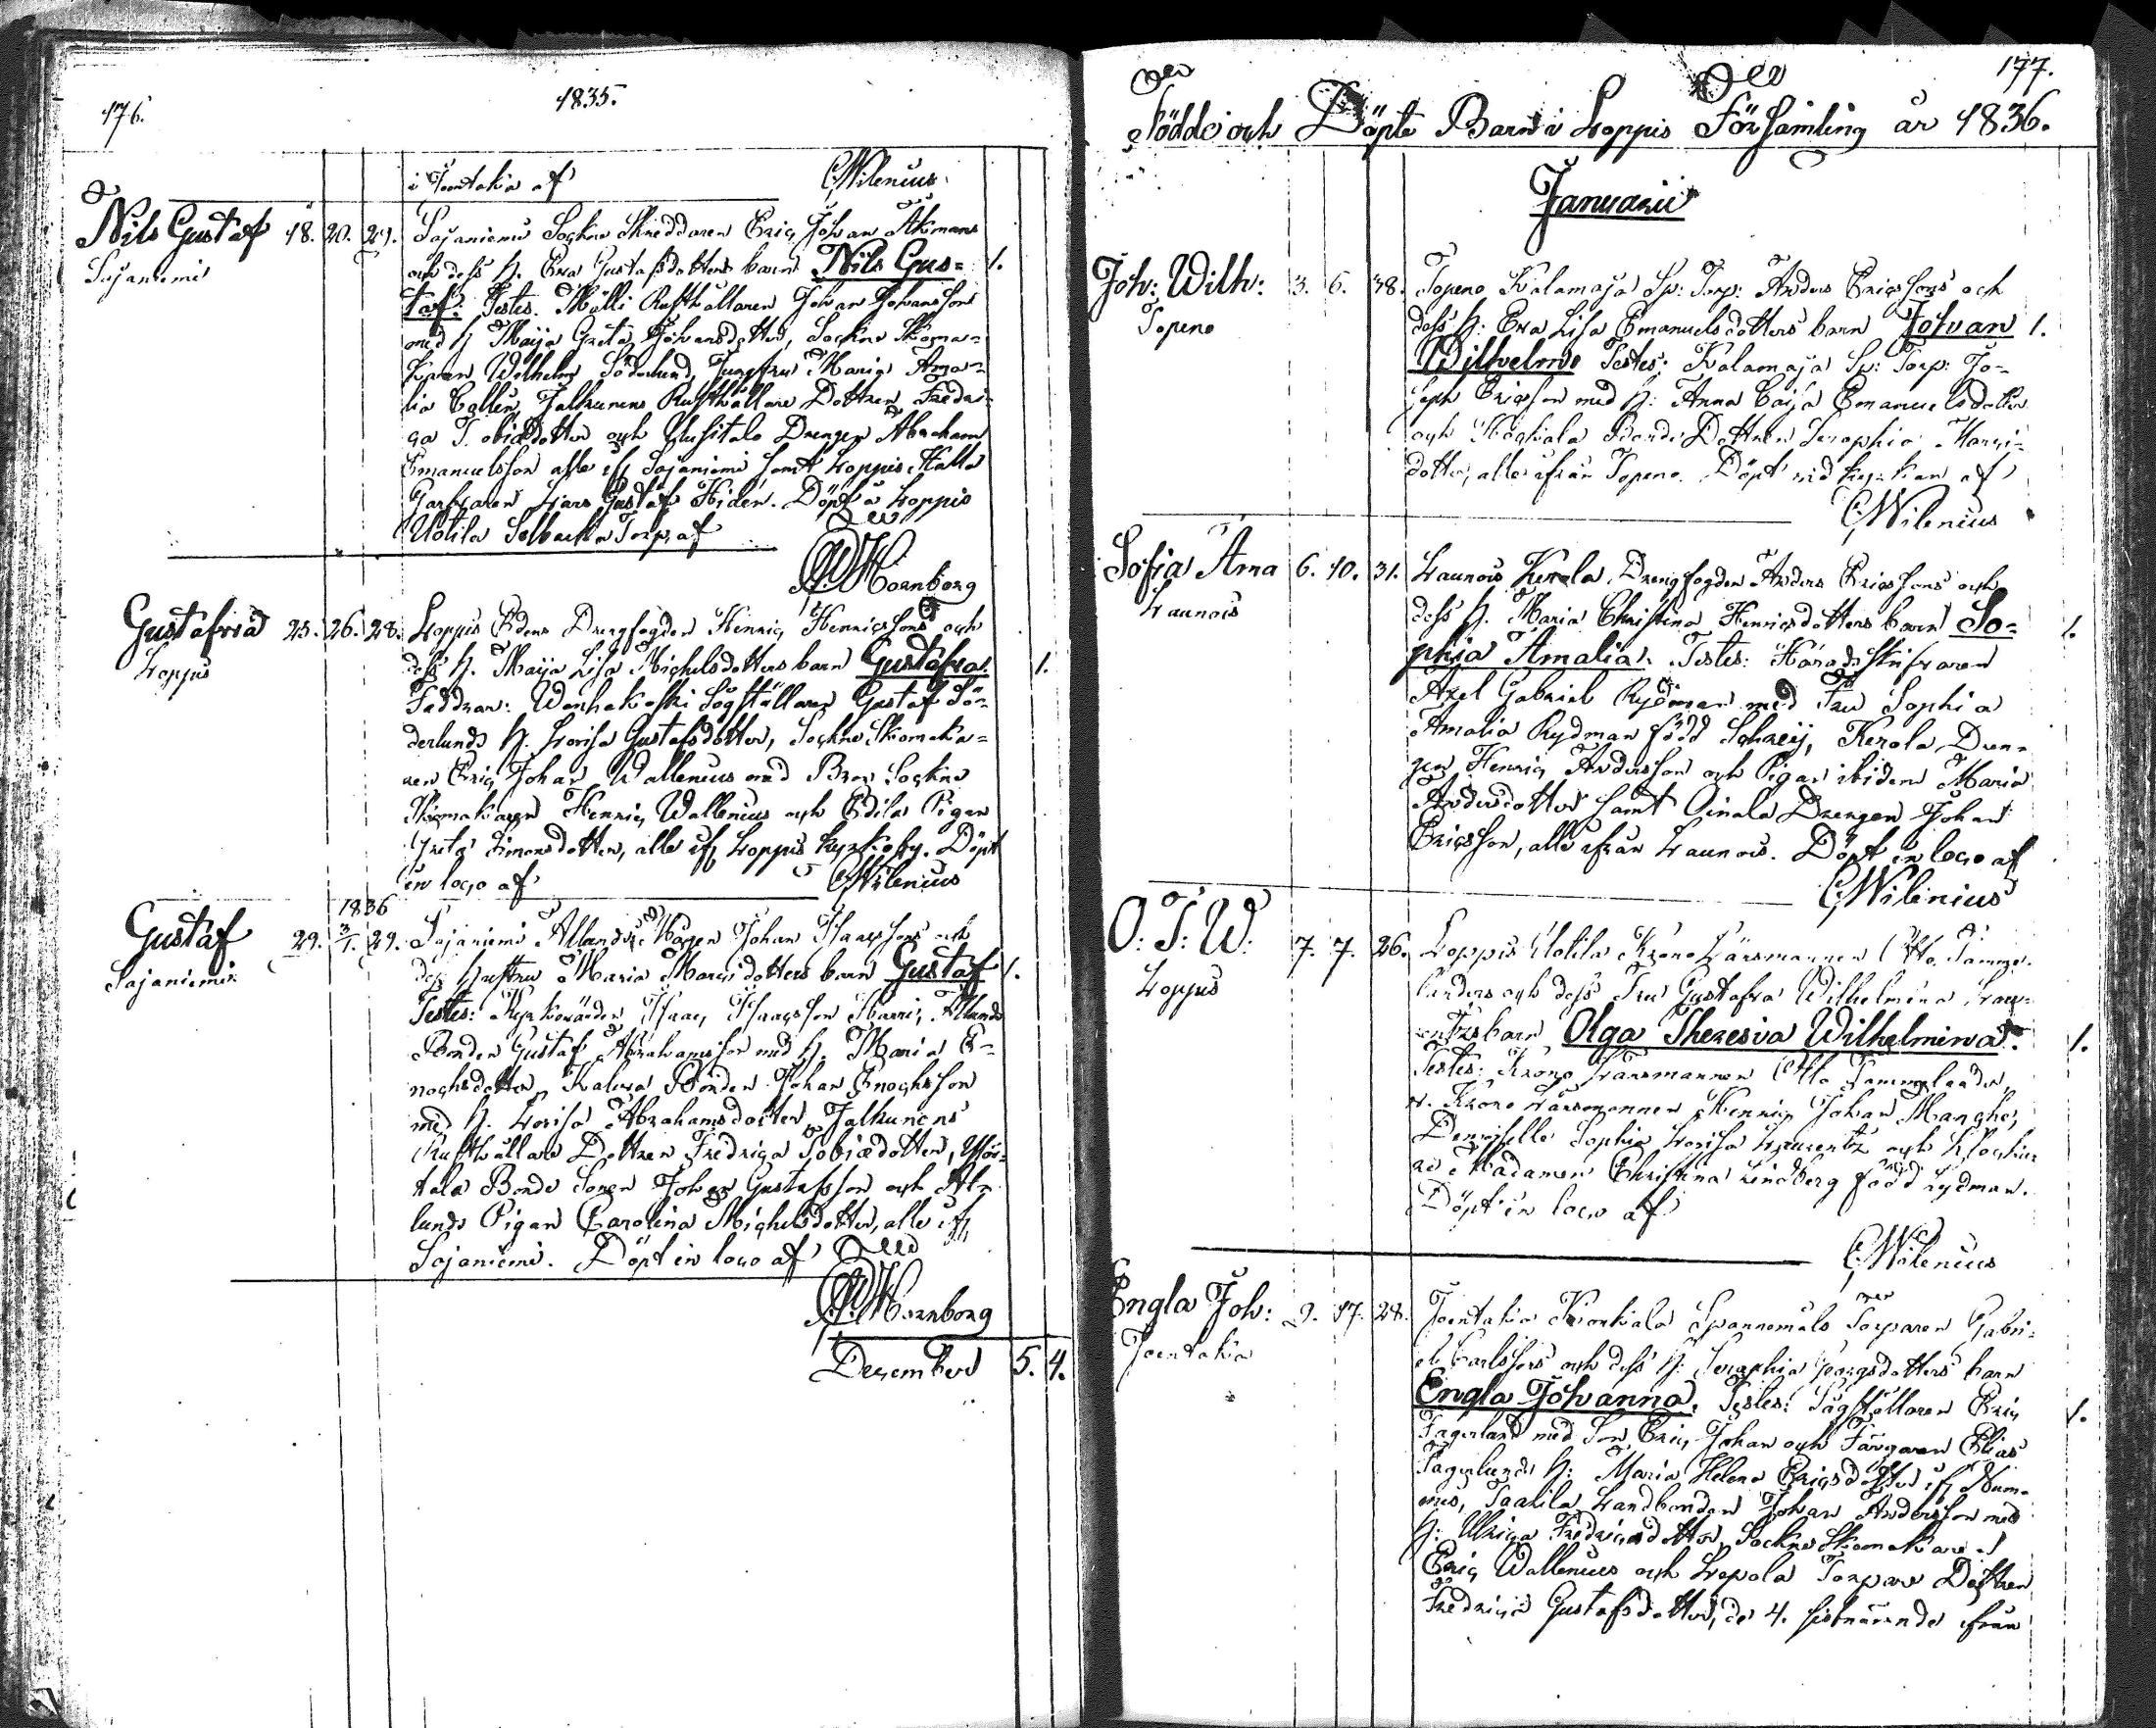 176.
1835.
i Joentaka af CWilenius
Nils Gustaf 18. 20. 29. Sajaniemi Sockne Skreddaren Eric Johan Åkmans
Sajaniemi
och dess h. Eva Gustafsdotters barn Nils Gus= 1.
taf. Testes. Mälli Rusthållaren Johan Johansson
med h Maija Greta Johansdotter, Sockne Skoma=
karen Wilhelm Söderlund, Jungfru Maria Ama=
lia Callen, Jalkunens Rusthållare Dottren Fredri=
ca Tobiædotter och Uusitalo Drengen Abraham
Emanuelsson alle ifr Sajaniemi samt Loppis Kallo
Garfvaren Lars Gustaf Hiden. Döpt å Loppis
Uotila Selbacka Torp af
Hornborg
Gustafva 25. 26. 28. Loppis Edens Drengfogden Henric Henricssons och
Loppis
dess h. Maija Lisa Michelsdotters barn Gustafva. 1.
Faddrar: Wanhakoski Sågställaren Gustaf Sö=
derlunds h. Lovisa Gustafsdotter, Sockne Skomaka=
ren Eric Johan Wallenius med Bror Sockne
Skomakaren Henric Wallenius och Edila Pigan
Greta Simonsdotter, alle ifr Loppis kyrkoby. Döpt
in loco af CWilenius
1836
Gustaf 29. 3/1. 29. Sajaniemi Allunds Mågen Johan Isaacssons och
Sajaniemi
dess hustru Maria Marcidotters barn Gustaf 1.
Testes: Kyrkovärden Isaac Isaacsson Marri, Allunds
Bonden Gustaf Abrahamsson med h. Maria E=
nochsdotter, Kaleva Bonden Johan Enochsson
med h. Lovisa Abrahamsdotter, Jalkunens
Rusthållare Dottren Fredrica Tobiædotter,
tala Bonde Sonen Johan Gustafsson och Al=
lunds Pigan Carolina Michelsdotter, alle ifr
Sajaniemi. Döpt in loco af
Hornborg
December 5. 4.
177.
Födde och Döpte Barn i Loppis Församling år 1836.
Januarii
Joh: Wilh: 3. 6. 38. Topeno Kalamaja Sp: Torp: Anders Ericssons och
Topeno
dess h: Eva Lisa Emanuelsdotters barn Johan 1.
Wilhelm. Testes: Kalamaja Sp: Torp: Jo=
seph Ericsson med h: Anna Caisa Emanuelsdotter
och Bonde Dottren Seraphia Marci=
dotter, alle ifrån Topeno. Döpt vid kyrkan af
CWilenius
Sofia Ama 6. 10. 31. Launois Kerola Drengfogden Anders Ericssons och
Launois
dess h. Maria Christina Henricsdotters barn So=
phia Amalia. Testes: Häradsskrifvaren 1.
Axel Gabriel Rydman med Fru Sophia
Amalia Rydman född Schreij, Kerola Dren=
gen Henric Andersson och Pigan ibidem Maria
Andersdotter samt Oinala Drengen Johan
Ericsson, alle ifrån Launois. Döpt in loco af
CWilenius
O: T: W. 7. 7. 26. Loppis Uotila Krono Länsmannen Otto Tamme=
Loppis
landers och dess Fru Gustafva Wilhelmina Lau=
rentzs barn Olga Theresia Wilhelmina. 1.
Testes: Krono Länsmannen Otto Tammelander,
v. Krono Länsmannen Henric Johan Manghe,
Demoiselle Sophia Lovisa Laurentz och Klocka=
re Madamen Christina Lindberg född Lydman.
Döpt in loco af
CWilenius
Engla Joh: 9. 17. 28. Joentaka Kiorkiala Spannemåls Torparen Gabri=
Joentaka
el Carlssons och dess h: Seraphia Georgsdotters barn
Engla Johanna. Testes: Sågställaren Eric 1.
Fagerlund med Son Eric Johan och Färgaren Elias
Fagerlunds h: Maria Helena Ericsdotter ifr Num=
mis, Taakila Landbonden Johan Andersson med
h: Ulrica Fredricsdotter, Sockne Skomakaren
Eric Wallenius och Lepola Torpare Dottren
Fredrica Gustafsdotter, de 4. sistnämnde ifrån